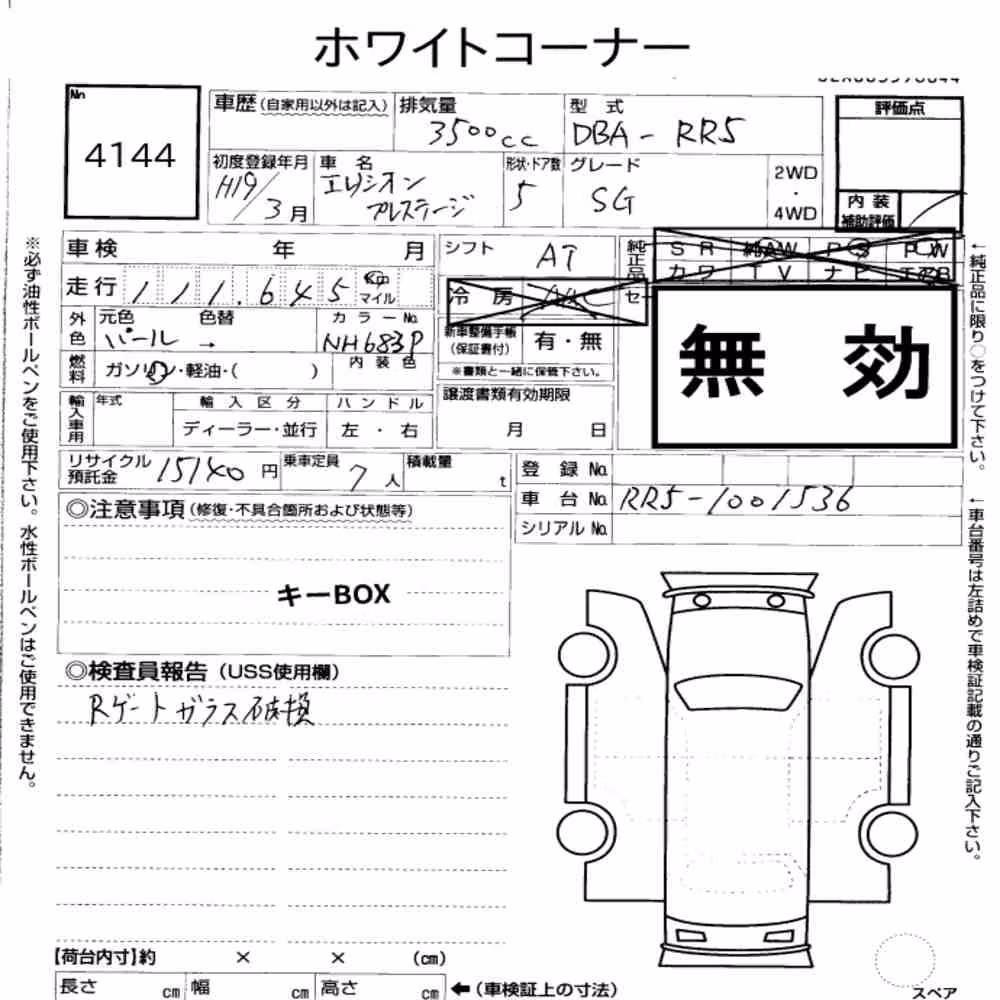 ホワイトコーナー
No
4144
車歴(自家用以外は記入)
排気量
3500cc
型式
DBA-RR5
評価点
初度登録年月
H19/3月
車名
エリシオン
プレステージ
形状・ドア数
5
グレード
SG
2WD
・
4WD
内装
補助評価
車検 年 月
シフト
AT
純正品
SR 純AW PS PW
カワ TV ナビ エアB
走行 111.645 km
マイル
冷房
無効
外色
元色 色替
パール →
カラーNo.
NH683P
新車整備手帳
(保証書付)
有・無
燃料
ガソリン・軽油・( )
内装色
※書類と一緒に保管下さい。
輸入車用
年式
輸入区分
ハンドル
ディーラー・並行
左・右
譲渡書類有効期限
月 日
リサイクル
預託金
15140円
乗車定員
7人
積載量
t
登録No.
車台No. RR5-1001536
シリアルNo.
◎注意事項(修復・不具合箇所および状態等)
キーBOX
◎検査員報告(USS使用欄)
Rゲートガラス破損
【荷台内寸】約 × × (cm)
長さ cm 幅 cm 高さ cm ←(車検証上の寸法)
スペア
※必ず油性ボールペンをご使用下さい。水性ボールペンはご使用できません。
←純正品に限り○をつけて下さい。
←車台番号は左詰めで車検証記載の通りご記入下さい。